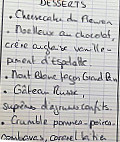 DESSERTS
• Cheesecake du Moment
• Moelleux au chocolat,
crème anglaise vanille-
piment d'Espelette
• Mont Blanc façon Grand
• Gâteau Russe,
suprêmes d'agrumes confits.
• Crumble pommes-poires-
caramel